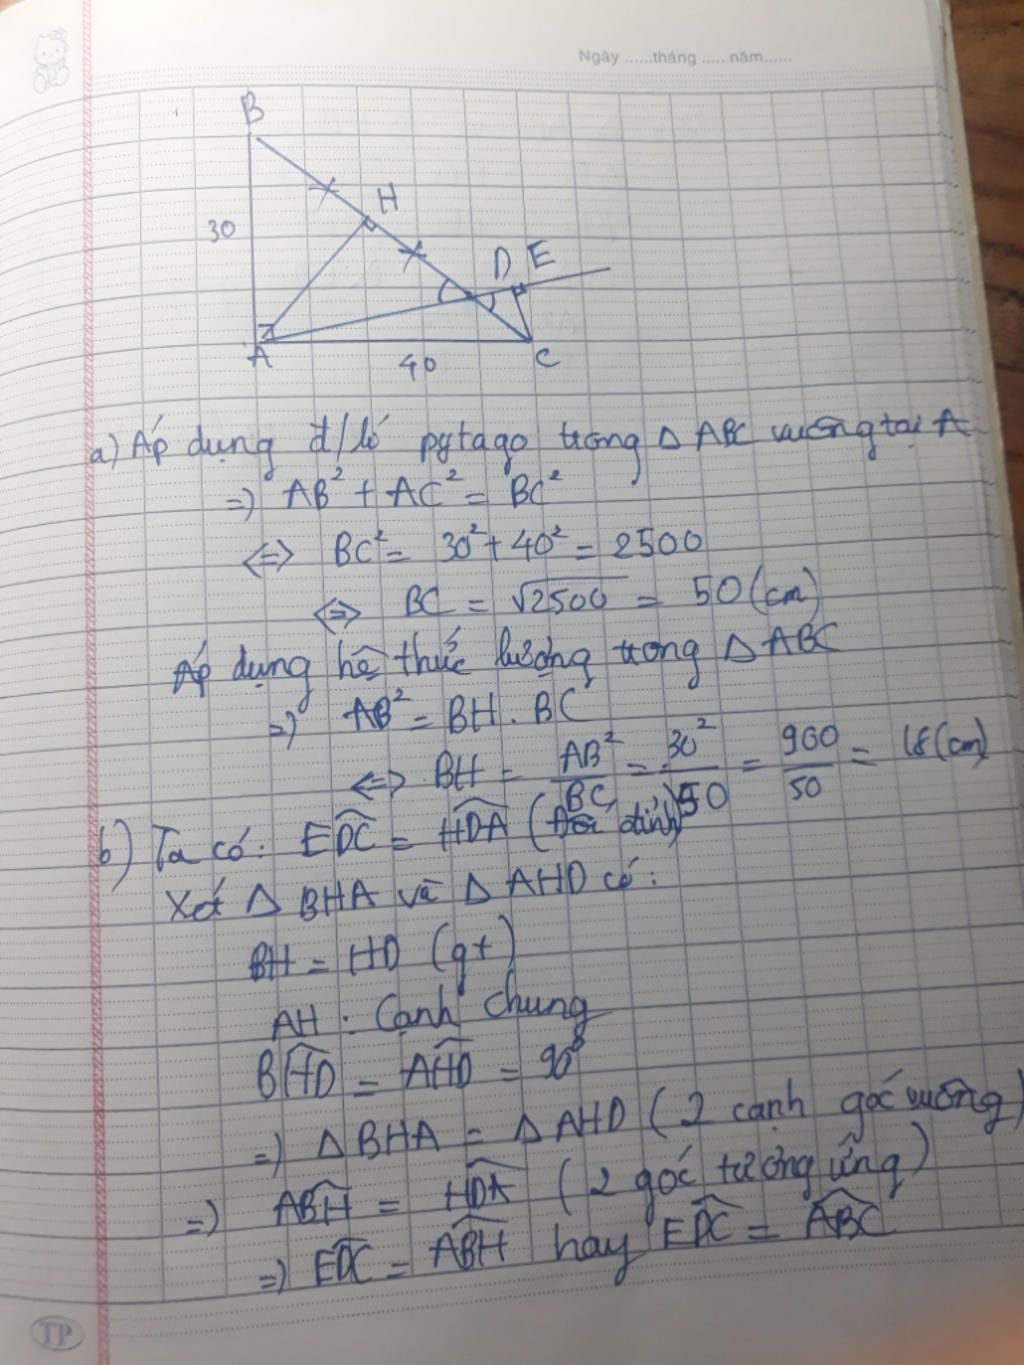 Ngày ......tháng ......năm......
B
H
30
D E
A
40
C
a) Áp dụng đ/lí pytago trong Δ ABC vuông tại A
=) AB² + AC² = BC²
<=> BC² = 30² + 40² = 2500
<=> BC = √2500 = 50 (cm)
Áp dụng hệ thức lượng trong Δ ABC
=) AB² = BH . BC
<=> BH = AB²/BC = 30²/50 = 900/50 = 18 (cm)
b) Ta có: \widehat{EDC} = \widehat{HDA} (Đối đỉnh)
Xét Δ BHA và Δ AHD có:
BH = HD (gt)
AH : Cạnh chung
\widehat{BHD} = \widehat{AHD} = 90°
=) Δ BHA = Δ AHD (2 cạnh góc vuông)
=) \widehat{ABH} = \widehat{HDA} (2 góc tương ứng)
=) \widehat{EDC} = \widehat{ABH} hay \widehat{EDC} = \widehat{ABC}
TP